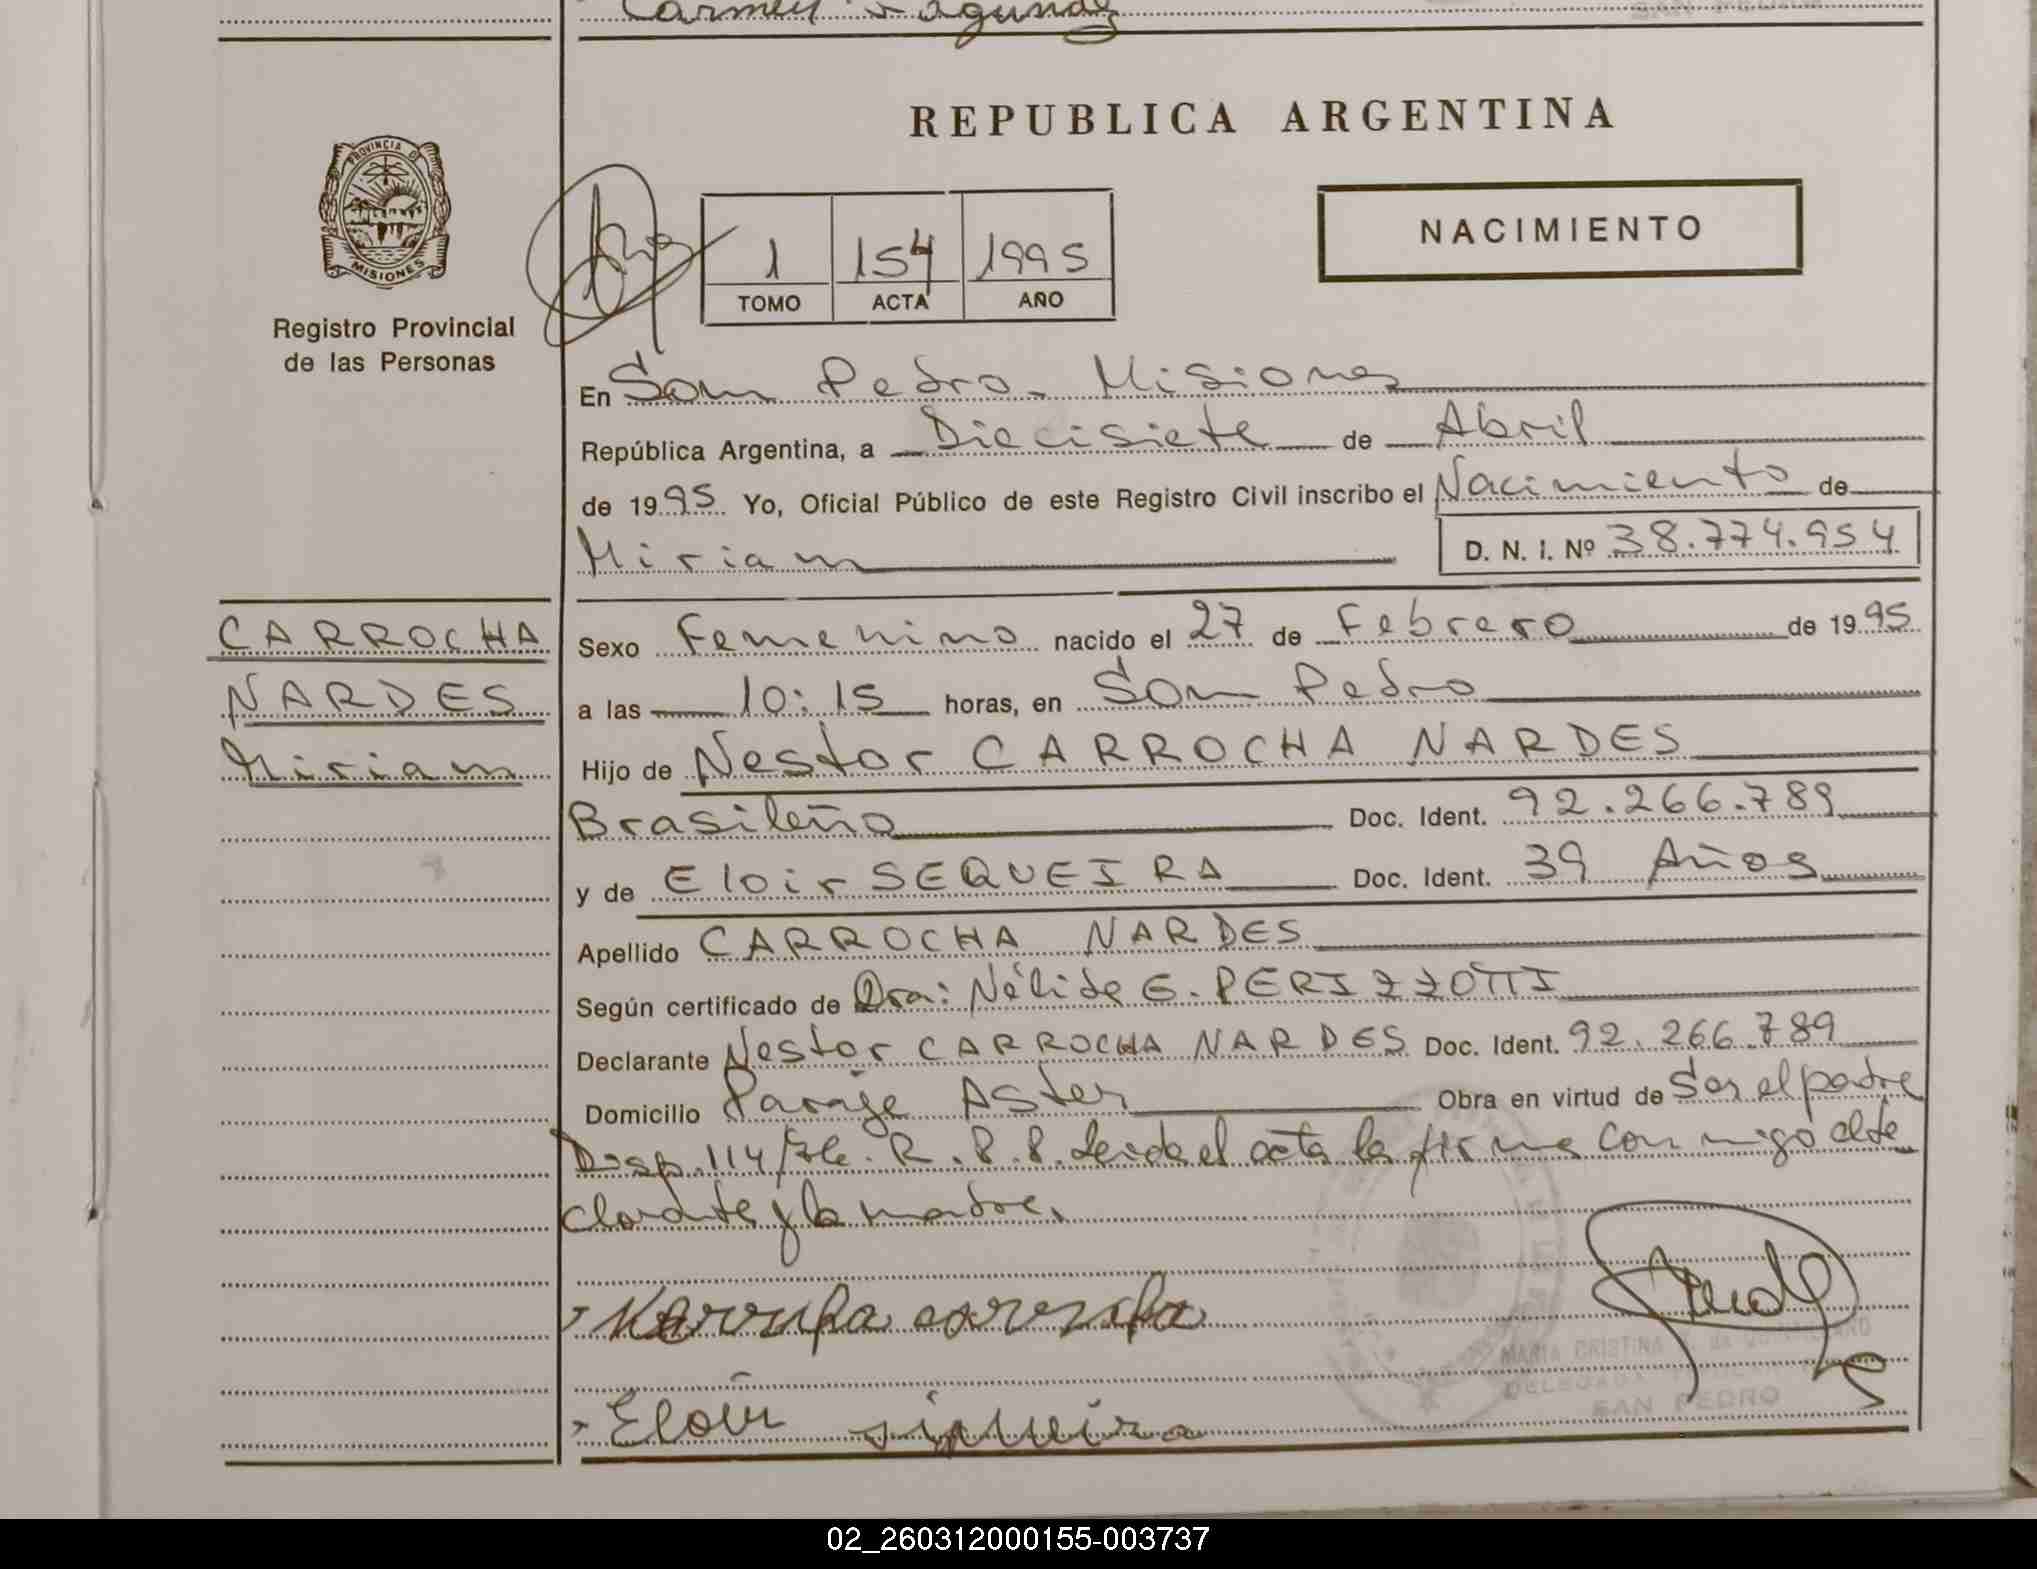 Carmen Fagundez
REPUBLICA ARGENTINA
PROVINCIA DE
MISIONES
Registro Provincial
de las Personas
1 154 1995
TOMO ACTA AÑO
NACIMIENTO
En San Pedro - Misiones
República Argentina, a Diecisiete de Abril
de 1995 Yo, Oficial Público de este Registro Civil inscribo el Nacimiento de
Miriam D. N. I. Nº 38.774.954
CARROCHA
NARDES
Miriam
Sexo Femenino nacido el 27 de Febrero de 1995
a las 10:15 horas, en San Pedro
Hijo de Nestor CARROCHA NARDES
Brasileño Doc. Ident. 92.266.789
y de Eloir SEQUEIRA Doc. Ident. 39 Años
Apellido CARROCHA NARDES
Según certificado de Dra: Nélida E. PERIZZOTTI
Declarante Nestor CARROCHA NARDES Doc. Ident. 92.266.789
Domicilio Paraje Aster Obra en virtud de Ser el padre
Disp. 114/ R.P.P. Leida el acta la firma conmigo el de
clarante y la madre.
Eloir siqueira
MARIA CRISTINA
DELEGADA
SAN PEDRO
02_260312000155-003737